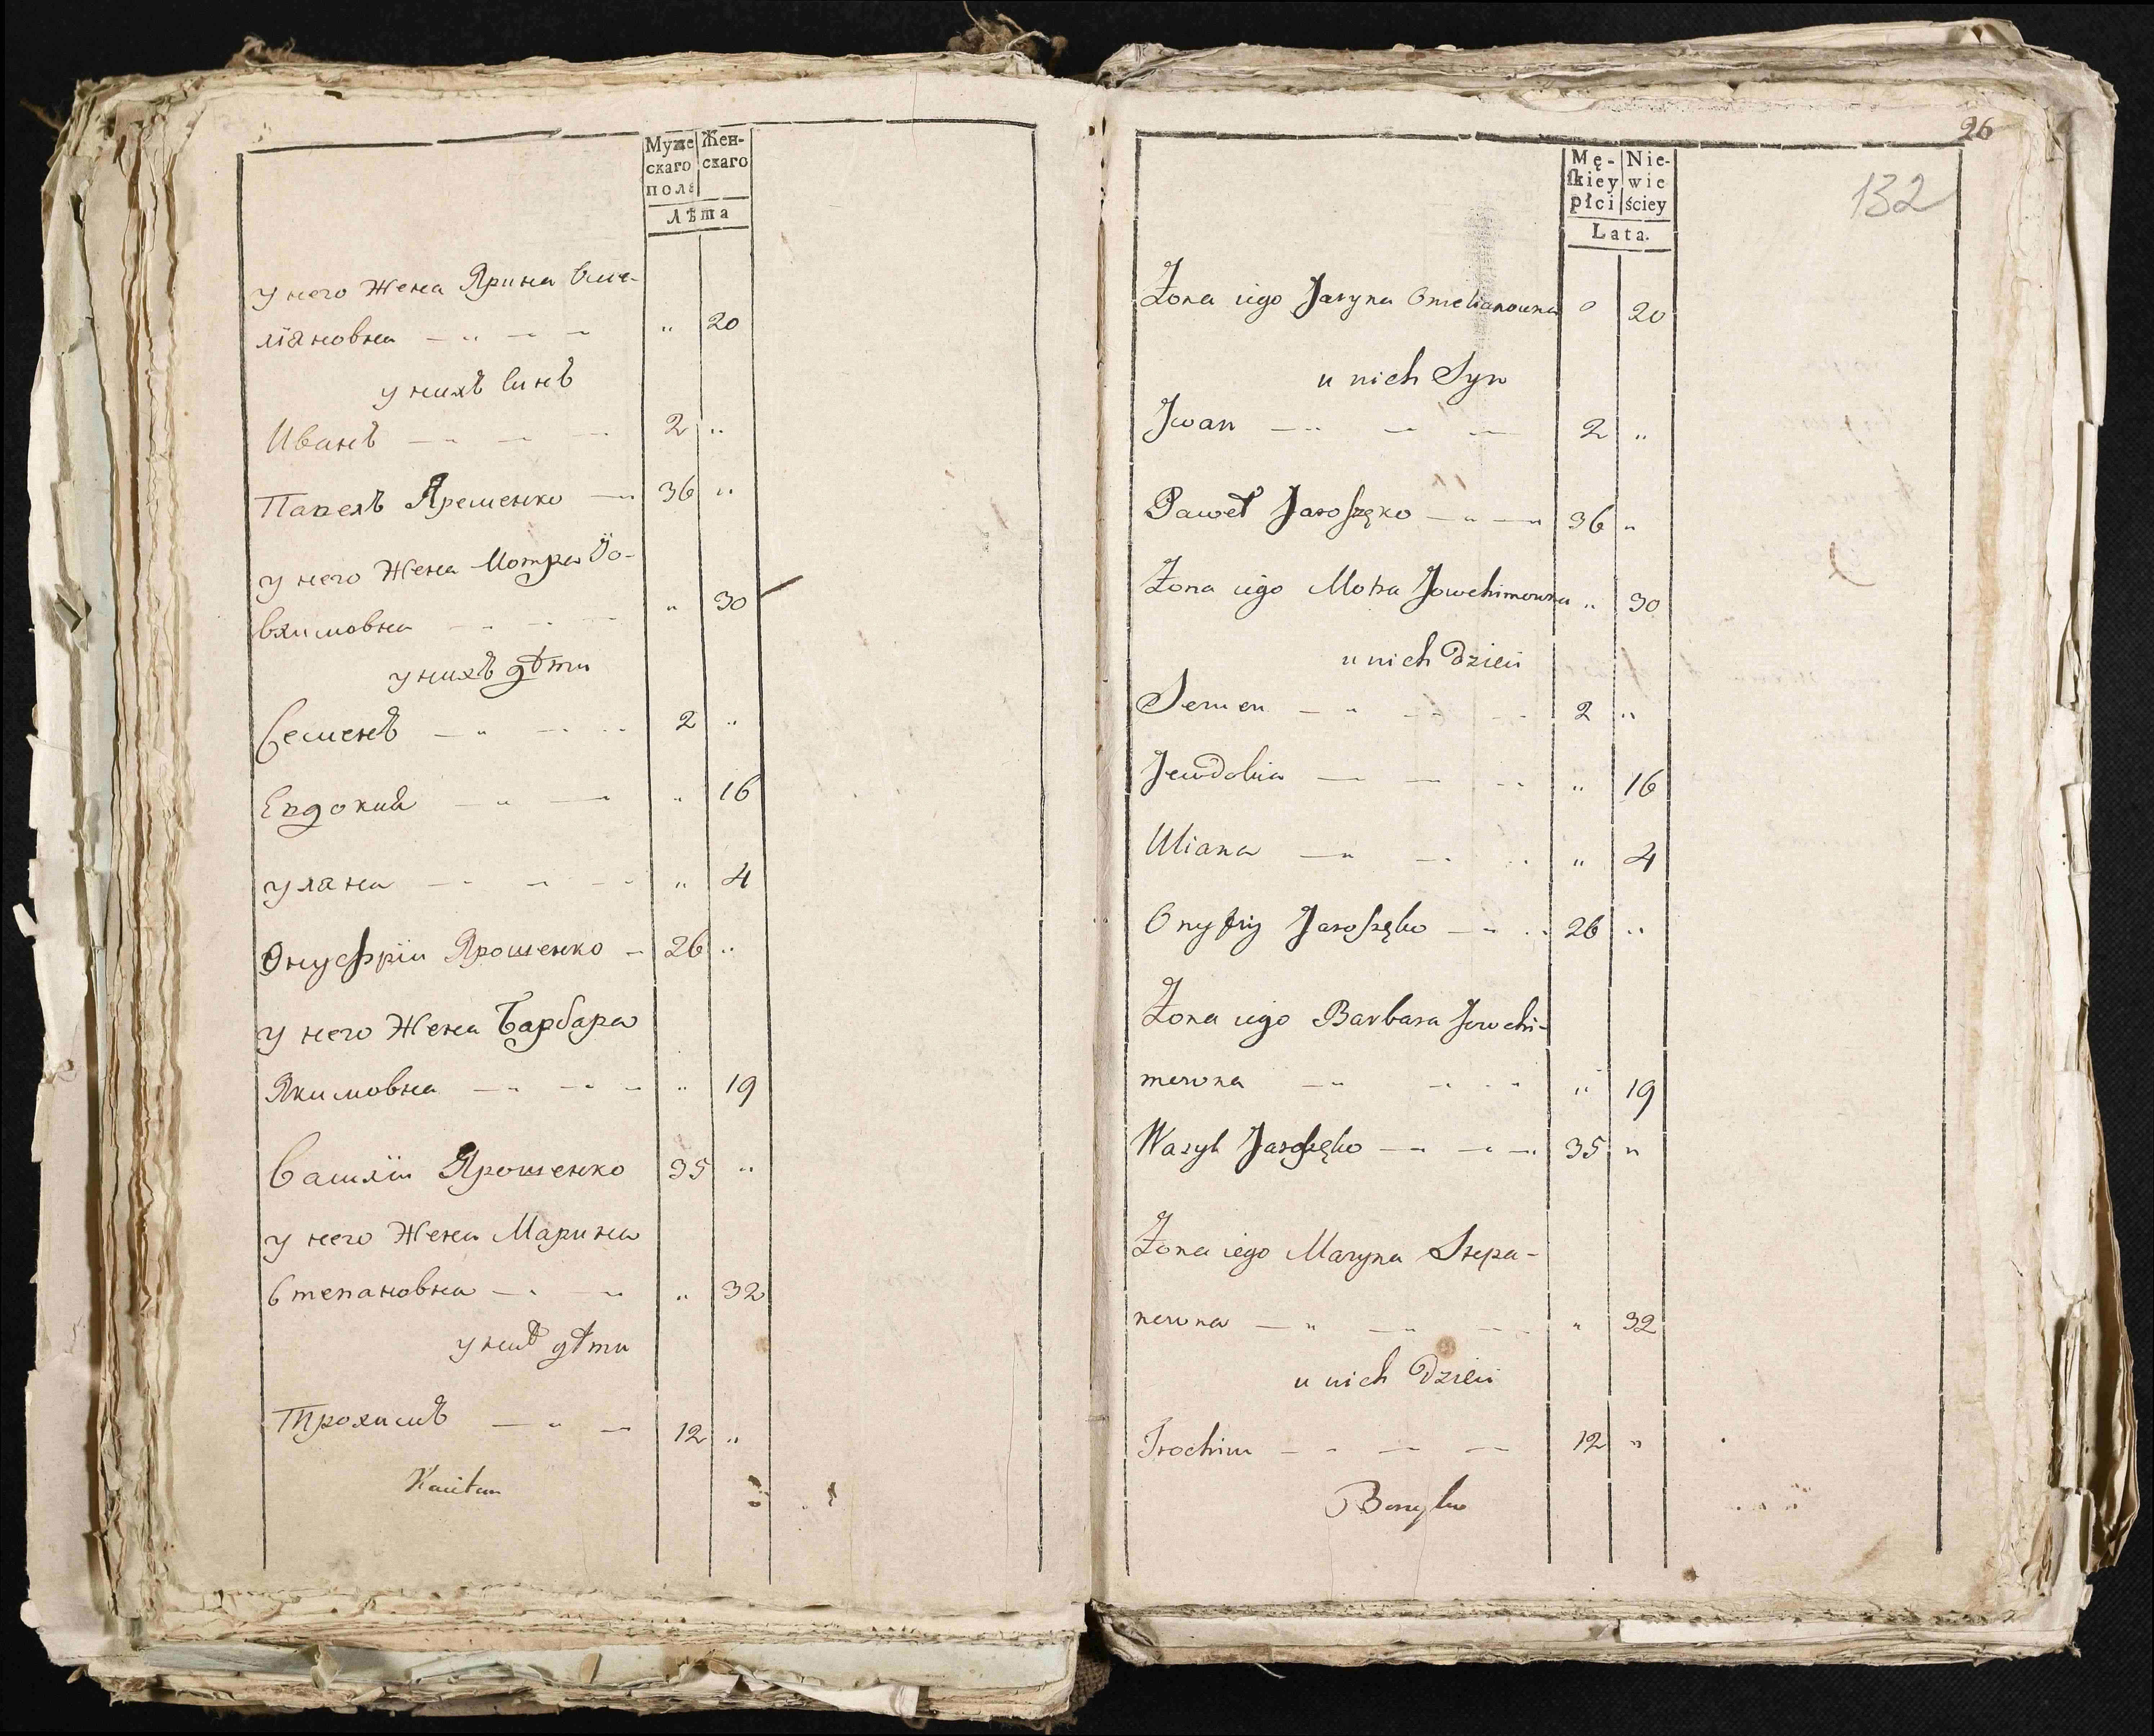 Муже Жен-
скаго скаго
пола
Лѣта
у него Жена Ярина Оме-
ліяновна — „ — — „ 20
у нихъ Синъ
Иванъ — — — 2 „
Павелъ Яремченко — 36 „
у него Жена Мотра Йо-
вхимовна — — — „ 30
у нихъ дѣти
Семенъ — „ — 2 „
Евдокия — „ — „ 16
Уляна — — — „ 4
Онуфрій Ярошенко — 26 „
у него Жена Барбара
Якимовна — — — „ 19
Василій Ярошенко 35 „
у него Жена Марина
Степановна — — „ 32
у нихъ дѣти
Трохимъ — „ — 12 „
26
132
Mę- Nie-
ſkiey wie
płci ściey
Lata.
Żona iego Jaryna Omelianowna 0 20
u nich Syn
Jwan — — — 2 „
Paweł Jaroſzęko — „ — 36 „
Żona iego Motra Jowchimowna „ 30
u nich Dzieci
Semen — „ — — 2 „
Jewdokia — — — „ 16
Uliana — — — „ 4
Onyfriy Jaroſzęko — „ 26 „
Żona iego Barbara Jowchi-
mowna — — — „ 19
Wasyl Jaroſzęko — — — 35 „
Żona iego Maryna Stepa-
nowna — „ — — „ 32
u nich Dzieci
Trochim — — — — 12 „